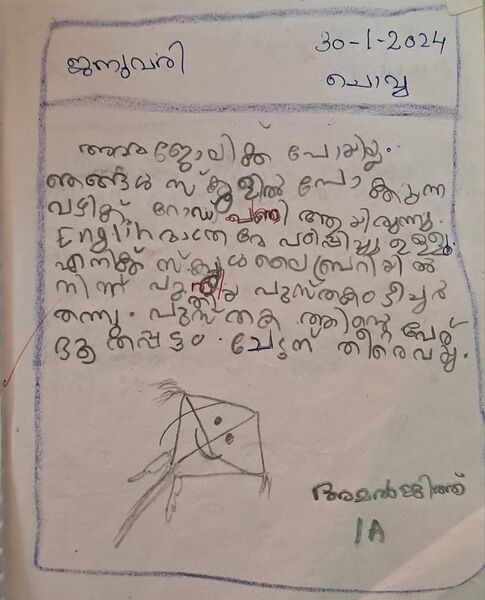 ജനുവരി
30-1-2024
ചൊവ്വ
അമ്മ ജോലിക്ക് പോയില്ല.
ഞങ്ങൾ സ്കൂളിൽ പോകുന്ന
വഴിക്ക് റോഡ് പണി ആയിരുന്നു.
English മാത്രമേ പഠിപ്പിച്ചു ഉള്ളൂ.
എനിക്ക് സ്കൂൾ ലൈബ്രറിയിൽ
നിന്ന് പുതിയ പുസ്തകം ടീച്ചർ
തന്നു. പുസ്തക ത്തിന്റെ പേര്
പട്ടം.
അമൽജിത്ത്
1A